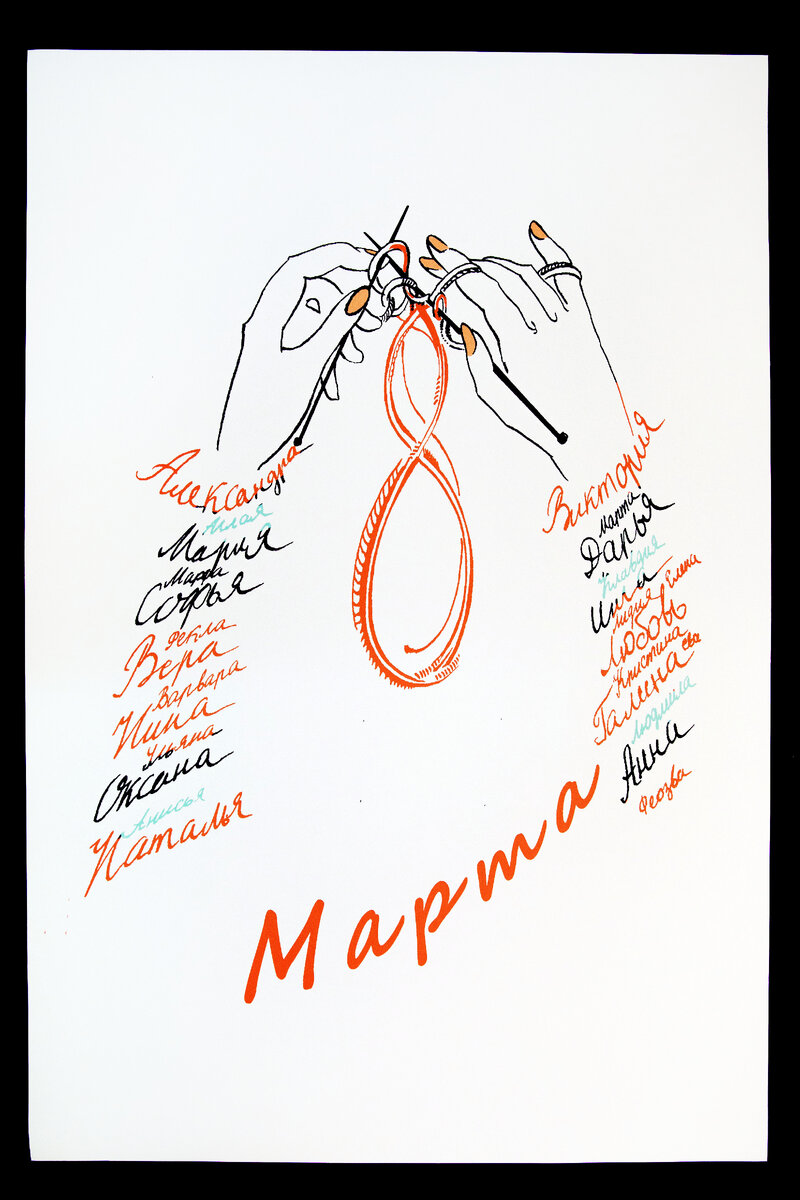 Александра
Мария
Марфа
Софья
Фекла
Вера
Варвара
Нина
Ульяна
Оксана
Анисья
Наталья
Виктория
марта
Дарья
Клавдия
Инга
Лидия Елена
Любовь
Кристина Ева
Галина
Людмила
Анна
Феозва
Марта